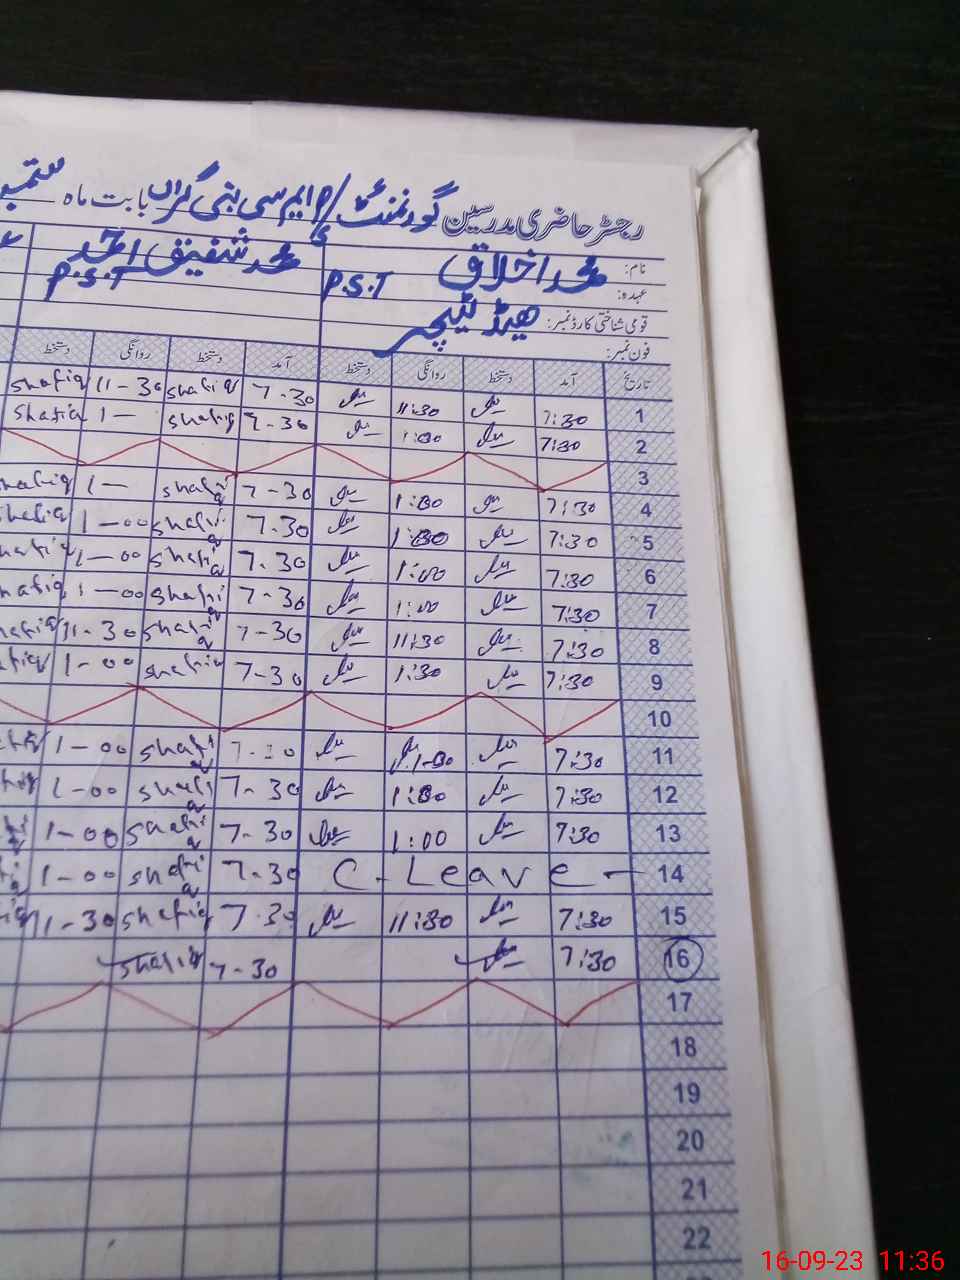 رجسٹر حاضری مدرسین گورنمنٹ / ایم سی بنی گراں بابت ماہ ستمبر
نام: محمد اخلاق P.S.T محمد شفیق احمد P.S.T
عہدہ: ہیڈ ٹیچر
قومی شناختی کارڈ نمبر:
فون نمبر:
تاریخ آمد دستخط روانگی دستخط آمد دستخط روانگی دستخط
1 7:30 11:30 7-30 shafiq 11-30 shafiq
2 7:30 1:00 7-30 shafiq 1- shafiq
3
4 7:30 1:00 7-30 shafiq 1-
5 7:30 1:00 7.30 shafiq 1-00
6 7:30 1:00 7.30 shafiq 1-00
7 7:30 1:00 7-30 shafiq 1-00
8 7:30 11:30 7-30 shafiq 11-30
9 7:30 1:30 7-30 shafiq 1-00
10
11 7:30 1-00 7-30 shafiq 1-00
12 7:30 1:00 7-30 shafiq 1-00
13 7:30 1:00 7-30 shafiq 1-00
14 C-Leave- 7.30 shafiq 1-00
15 7:30 11:30 7.30 shafiq 11-30
16 7:30 7-30 shafiq
17
18
19
20
21
22
16-09-23 11:36